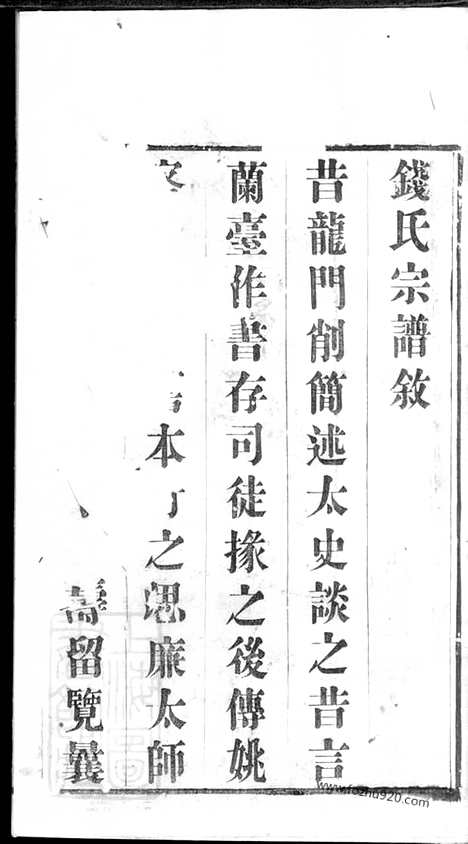 錢氏宗譜敘
昔龍門削簡述太史談之昔言
蘭臺作書存司徒掾之後傳姚
本之思廉太師
留覽曩
www.fozhu920.com